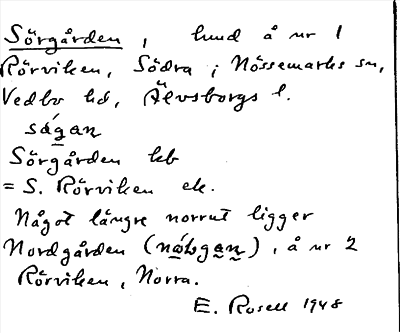 Sörgården, hmd å nr 1
Rörviken, Södra i Nössemarks sn,
Vedbo hd, Älvsborgs l.
ságan
Sörgården kb
= S. Rörviken ek.
Något längre norrut ligger
Nordgården (), å nr 2
Rörviken, Norra.
E. Rosell 1948